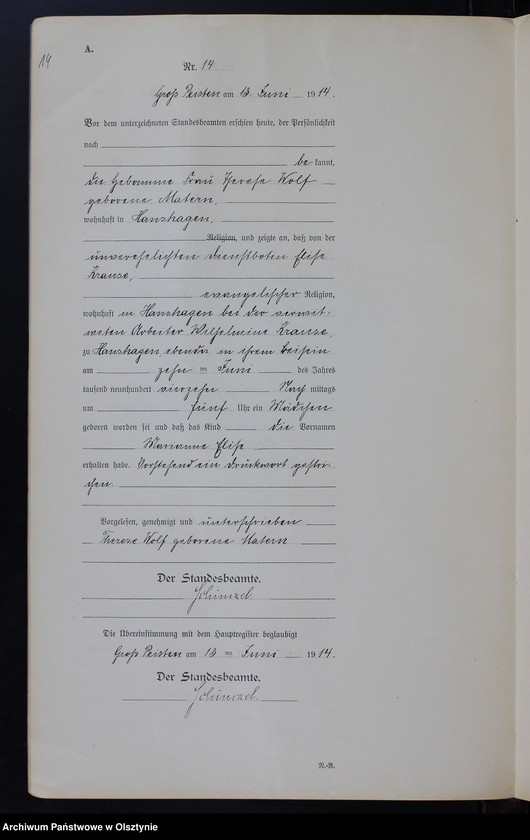 14
A.
Nr. 14
Groß Peisten am 13. Juni 1914.
Vor dem unterzeichneten Standesbeamten erschien heute, der Persönlichkeit
nach
be kannt,
die Hebamme Frau Therese Wolf
geborene Matern,
wohnhaft in Hanshagen,
Religion, und zeigte an, daß von der
unverehelichten Dienstboten Elise
Krause,
evangelischer Religion,
wohnhaft in Hanshagen bei der verwit-
weten Arbeiter Wilhelmine Krause,
zu Hanshagen, ebenda in ihrem Beisein
am zehn ten Juni des Jahres
tausend neunhundert vierzehn Nach mittags
um fünf Uhr ein Mädchen
geboren worden sei und daß das Kind die Vornamen
Marianne Elise
erhalten habe. Vorstehend ein Druckwort gestri-
chen.
Vorgelesen, genehmigt und unterschrieben
Therese Wolf geborene Matern
Der Standesbeamte.
Die Übereinstimmung mit dem Hauptregister beglaubigt
Groß Peisten am 13 ten Juni 1914.
Der Standesbeamte.
N.-R.
Archiwum Państwowe w Olsztynie